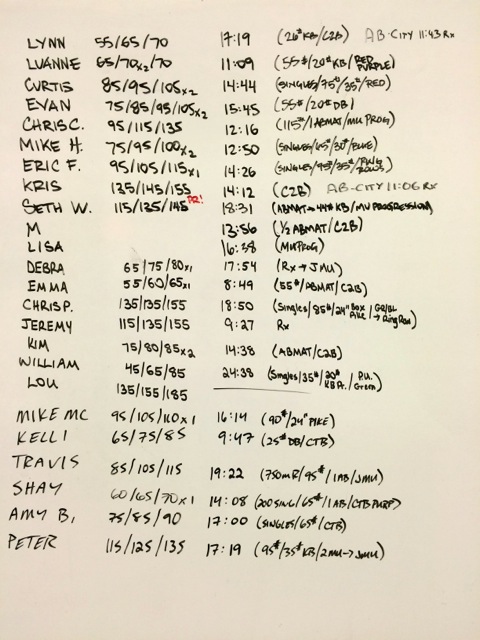 LYNN 55/65/70 17:19 (26# KB/C2B) AB-CITY 11:43 Rx
LUANNE 65/70x2/70 11:09 (55#/20# KB/RED PURPLE)
CURTIS 85/95/105x2 14:44 (SINGLES/75#/35#/RED)
EVAN 75/85/95/105x2 15:45 (55#/20# DB)
CHRIS C. 95/115/135 12:16 (115#/1ABMAT/MU PROG)
MIKE H. 75/95/100x2 12:50 (SINGLES/65#/30#/BLUE)
ERIC F. 95/105/115x1 14:26 (SINGLES/95#/35#/RING ROWS)
KRIS 135/145/155 14:12 (C2B) AB-CITY 11:06 Rx
SETH W. 115/135/145 PR! 18:31 (ABMAT 44# KB/MU PROGRESSION)
M 13:56 (1/2 ABMAT/C2B)
LISA 16:38 (MU PROG)
DEBRA 65/75/80x1 17:54 (Rx → JMU)
EMMA 55/60/65x1 8:49 (55#/ABMAT/C2B)
CHRIS P. 135/135/155 18:50 (Singles/85#/24" BOX PIKE/ → Ring Row)
JEREMY 115/135/155 9:27 Rx
KIM 75/80/85x2 14:38 (ABMAT/C2B)
WILLIAM 45/65/85 24:38 (Singles/35#/20# KB Pr./P.U. Green)
LOU 135/155/185
MIKE MC 95/105/110x1 16:14 (90#/24" PIKE)
KELLI 65/75/85 9:47 (25# DB/CTB)
TRAVIS 85/105/115 19:22 (750mR/95#/1AB/JMU)
SHAY 60/65/70x1 14:08 (200 SING/65#/1AB/CTB PURP)
AMY B, 75/85/90 17:00 (SINGLES/65#/CTB)
PETER 115/125/135 17:19 (95#/35# KB/2MU→JMU)